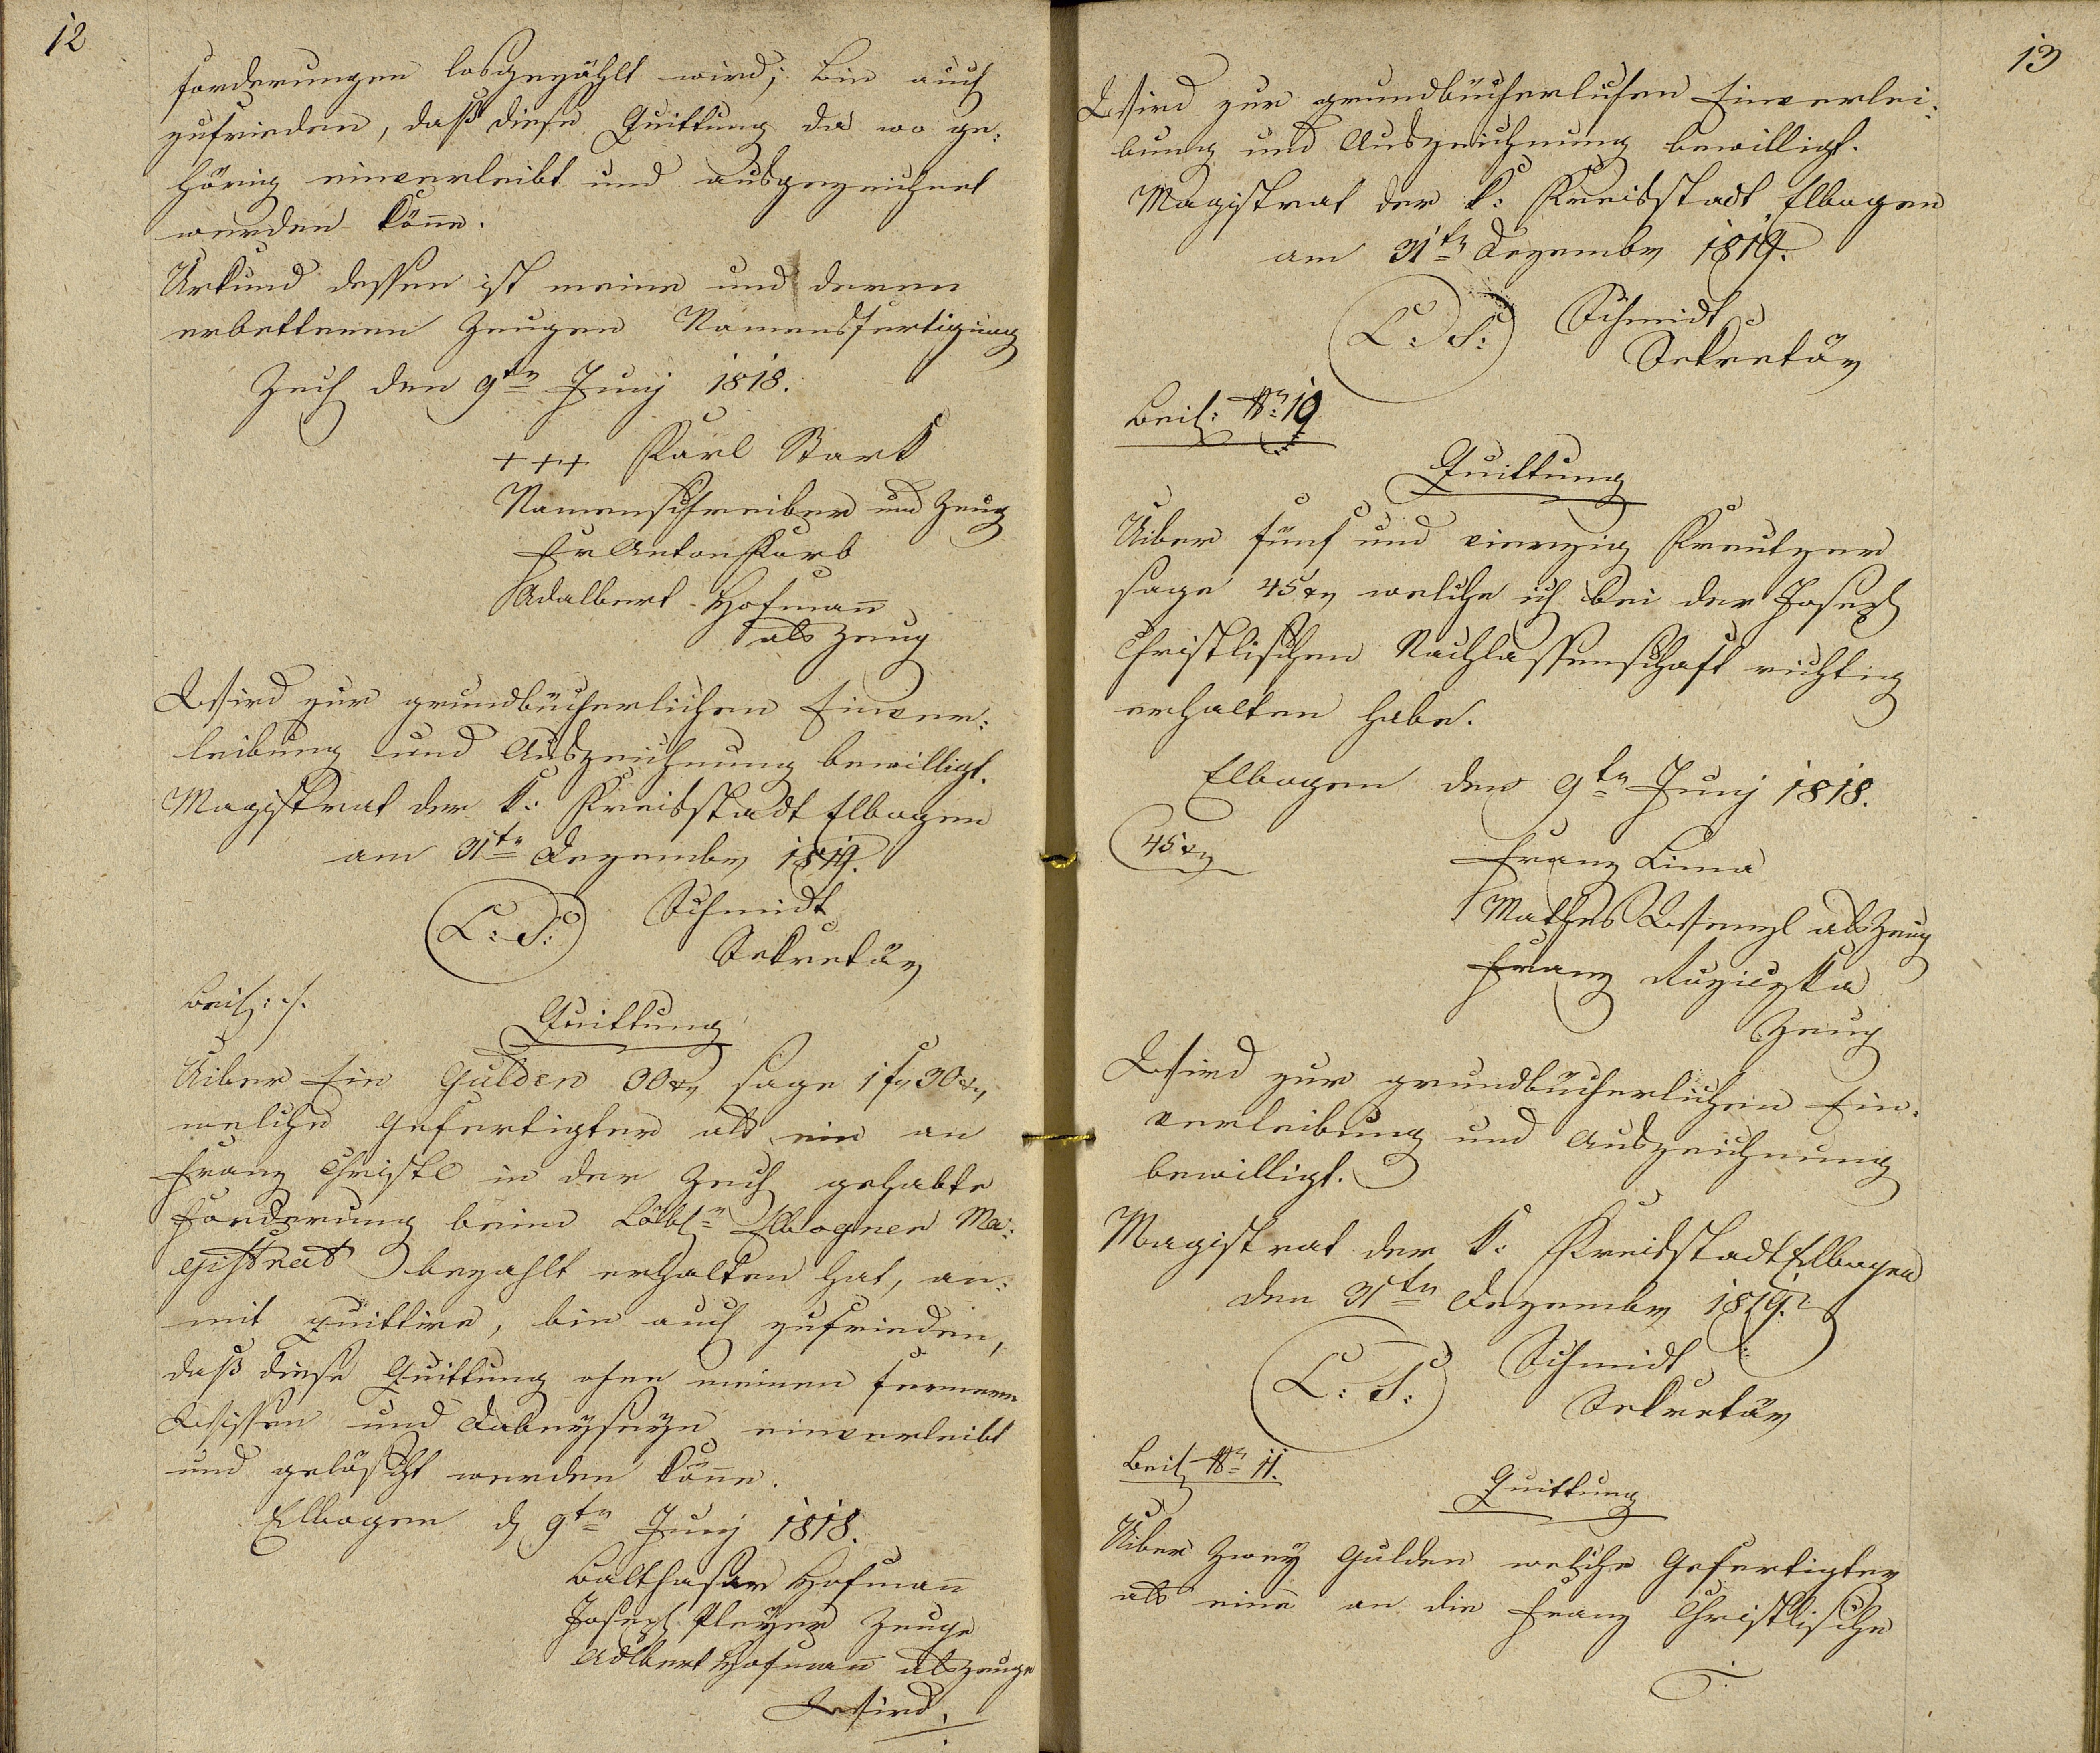 12
forderungen losgezählt wird; bin auch
zufrieden, daß diese Quittung da wo ge:
hörig einverleibt und ausgezeichnet
werden könne.
Urkund dessen ist meine und deren
erbettenen Zeugen Namensfertigung
Zech den 9tn Junj 1818.
+++ Karl Stark
Namensschreiber und Zeug
Fr Anton Korb
Adalbert Hofmann
als Zeug
Wird zur grundbücherlichen Einver:
leibung und Auszeichnung bewilligt.
Magistrat der k: Kreisstadt Elbogen
am 31tn Dezember 1819.
L: S: Schmidt
Sekretär
Beil: ./.
Quittung
Uiber Ein Gulden 30 xr, sage 1 fr 30 xr,
welche Gefertigter als ein an
Franz Christl in der Zech gehabte
Forderung beim Löbln Elbogner Ma:
gistrat bezahlt erhalten hat, an:
mit quittire, bin auch zufrieden,
daß diese Quittung ohne meinen fernern
Wissen und Dabeyseyn einverleibt
und gelöscht werden könne.
Elbogen d 9tn Junj 1818.
Balthasar Hofmann
Joseph Pleyer Zeuge
Adlbert Hofmann als Zeuge
Wird.
13
Wird zur grundbücherlichen Einverlei:
bung und Auszeichnung bewilligt.
Magistrat der k: Kreisstadt Elbogen
am 31tn Dezember 1819.
L: S: Schmidt
Sekretär
Beil: No 10
Quittung
Uiber fünf und vierzig Kreutzer
sage 45 xr welche ich bei der Joseph
Christlischen Nachlassenschaft richtig
erhalten habe.
Elbogen den 9tn Junj 1818.
45 xr
Franz Lima
Mathes Wenzl als Zeug
Franz Ruziczka
Zeug
Wird zur grundbücherlichen Ein:
verleibung und Auszeichnung
bewilligt.
Magistrat der k: Kreisstadt Elbogen
den 31tn Dezember 1819.
L: S: Schmidt
Sekretär
Beil No 11.
Quittung
Uiber Zwey Gulden welche Gefertigter
als eine an die Franz Christlische